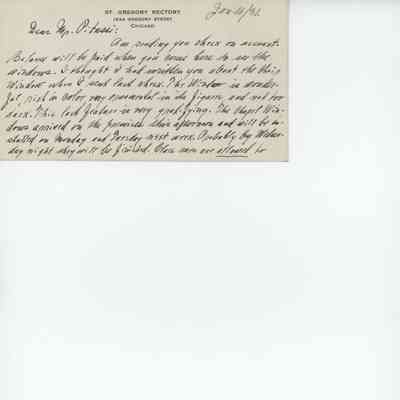 ST. GREGORY RECTORY
1634 GREGORY STREET
CHICAGO
Jan 16/31.
Dear Mr. Pitassi:
Am sending you check on account.
Balance will be paid when you come here to see the
windows. I thought I had written you about the
Window when I sent last check. The Window is wonder-
ful, rich in color, very ornamental in the figures and not too
dark. This last feature is very gratifying. The Chapel Win-
dows arrived on the premises this afternoon and will be in-
stalled on Monday and Tuesday next week. Probably by Wednes-
day night they will be finished. Glass men are allowed to